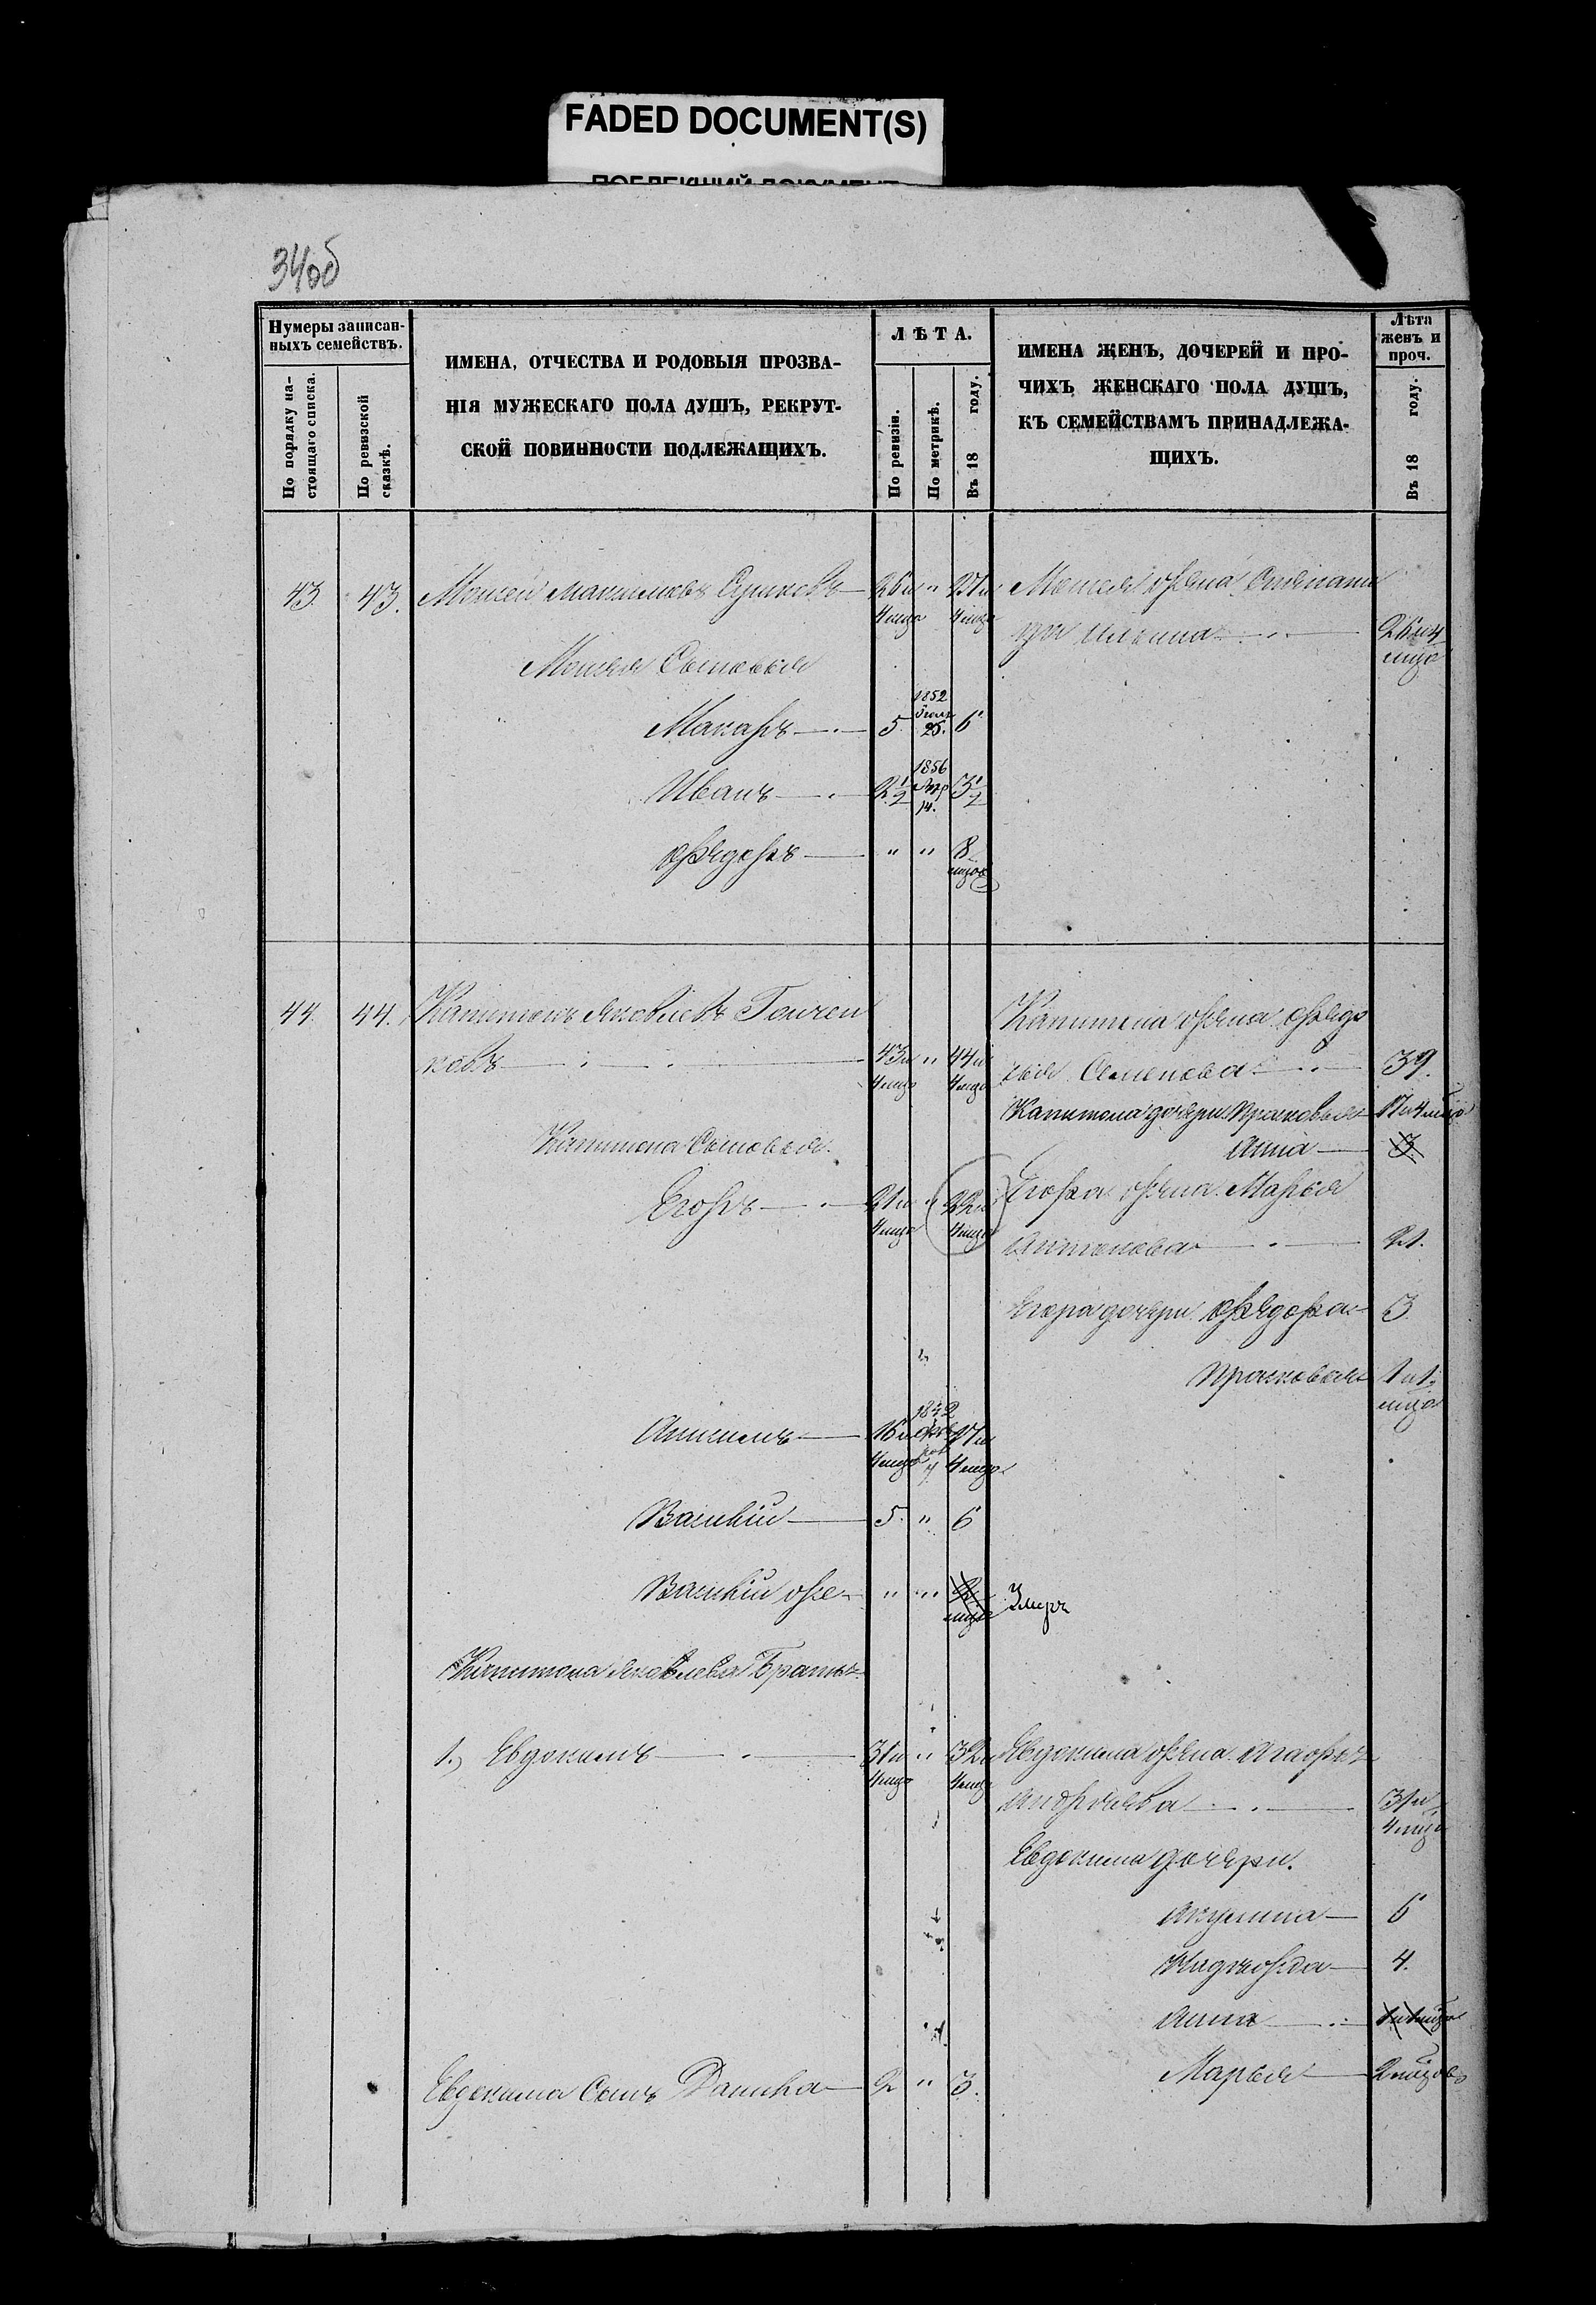 FADED DOCUMENT(S)
34об
Нумеры записан-
ныхъ семействъ.
По порядку на-
стоящаго списка.
По ревизской
сказкѣ.
ИМЕНА, ОТЧЕСТВА И РОДОВЫЯ ПРОЗВА-
НІЯ МУЖЕСКАГО ПОЛА ДУШЪ, РЕКРУТ-
СКОЙ ПОВИННОСТИ ПОДЛЕЖАЩИХЪ.
ЛѢТА.
По ревизіи.
По метрикѣ.
Въ 18 году.
ИМЕНА ЖЕНЪ, ДОЧЕРЕЙ И ПРО-
ЧИХЪ ЖЕНСКАГО ПОЛА ДУШЪ,
КЪ СЕМЕЙСТВАМЪ ПРИНАДЛЕЖА-
ЩИХЪ.
Лѣта
женъ и
проч.
Въ 18 году.
43. 43. Моисей Максимовъ 26 и " 27 и Моисея жена
4 мца 4 мца 26 и 4
мца
Моисея Сыновья
Макаръ 5 1852 25. 6
Иванъ 2 1/2 1856 14. 3 1/2
Ѳедоръ " " 8
мцов
44. 44. Капитонъ Яковлевъ Гончен
ковъ 43 и " 44 и
4 мца 4 мца
Капитона жена Ѳедо
Семенова 39.
Капитона дочери Прасковья 17 и 4 мца
Анна 3
Капитона Сыновья.
Егоръ 21 и " 22 и
4 мца 4 мца
Егора жена Марья
Антонова 21.
Егора дочери Ѳедора 3
Прасковья 1 и 1
мца
Анисимъ 16 и 1842 17 и
4 мца 4 4 мца
Василій 5. " 6
Василій же " "
Умеръ
Капитона Яковлева Братья
1., Евдокимъ 31 и " 32 и
4 мца 4 мца
Евдокима жена Агафья
Андреева 31 и
4 мца
Евдокима дочери.
Акулина 6
Надежда 4.
Анна 1 и 1 мца
Марья 2 мцов
Евдокима Сынъ Данила 2 " 3.